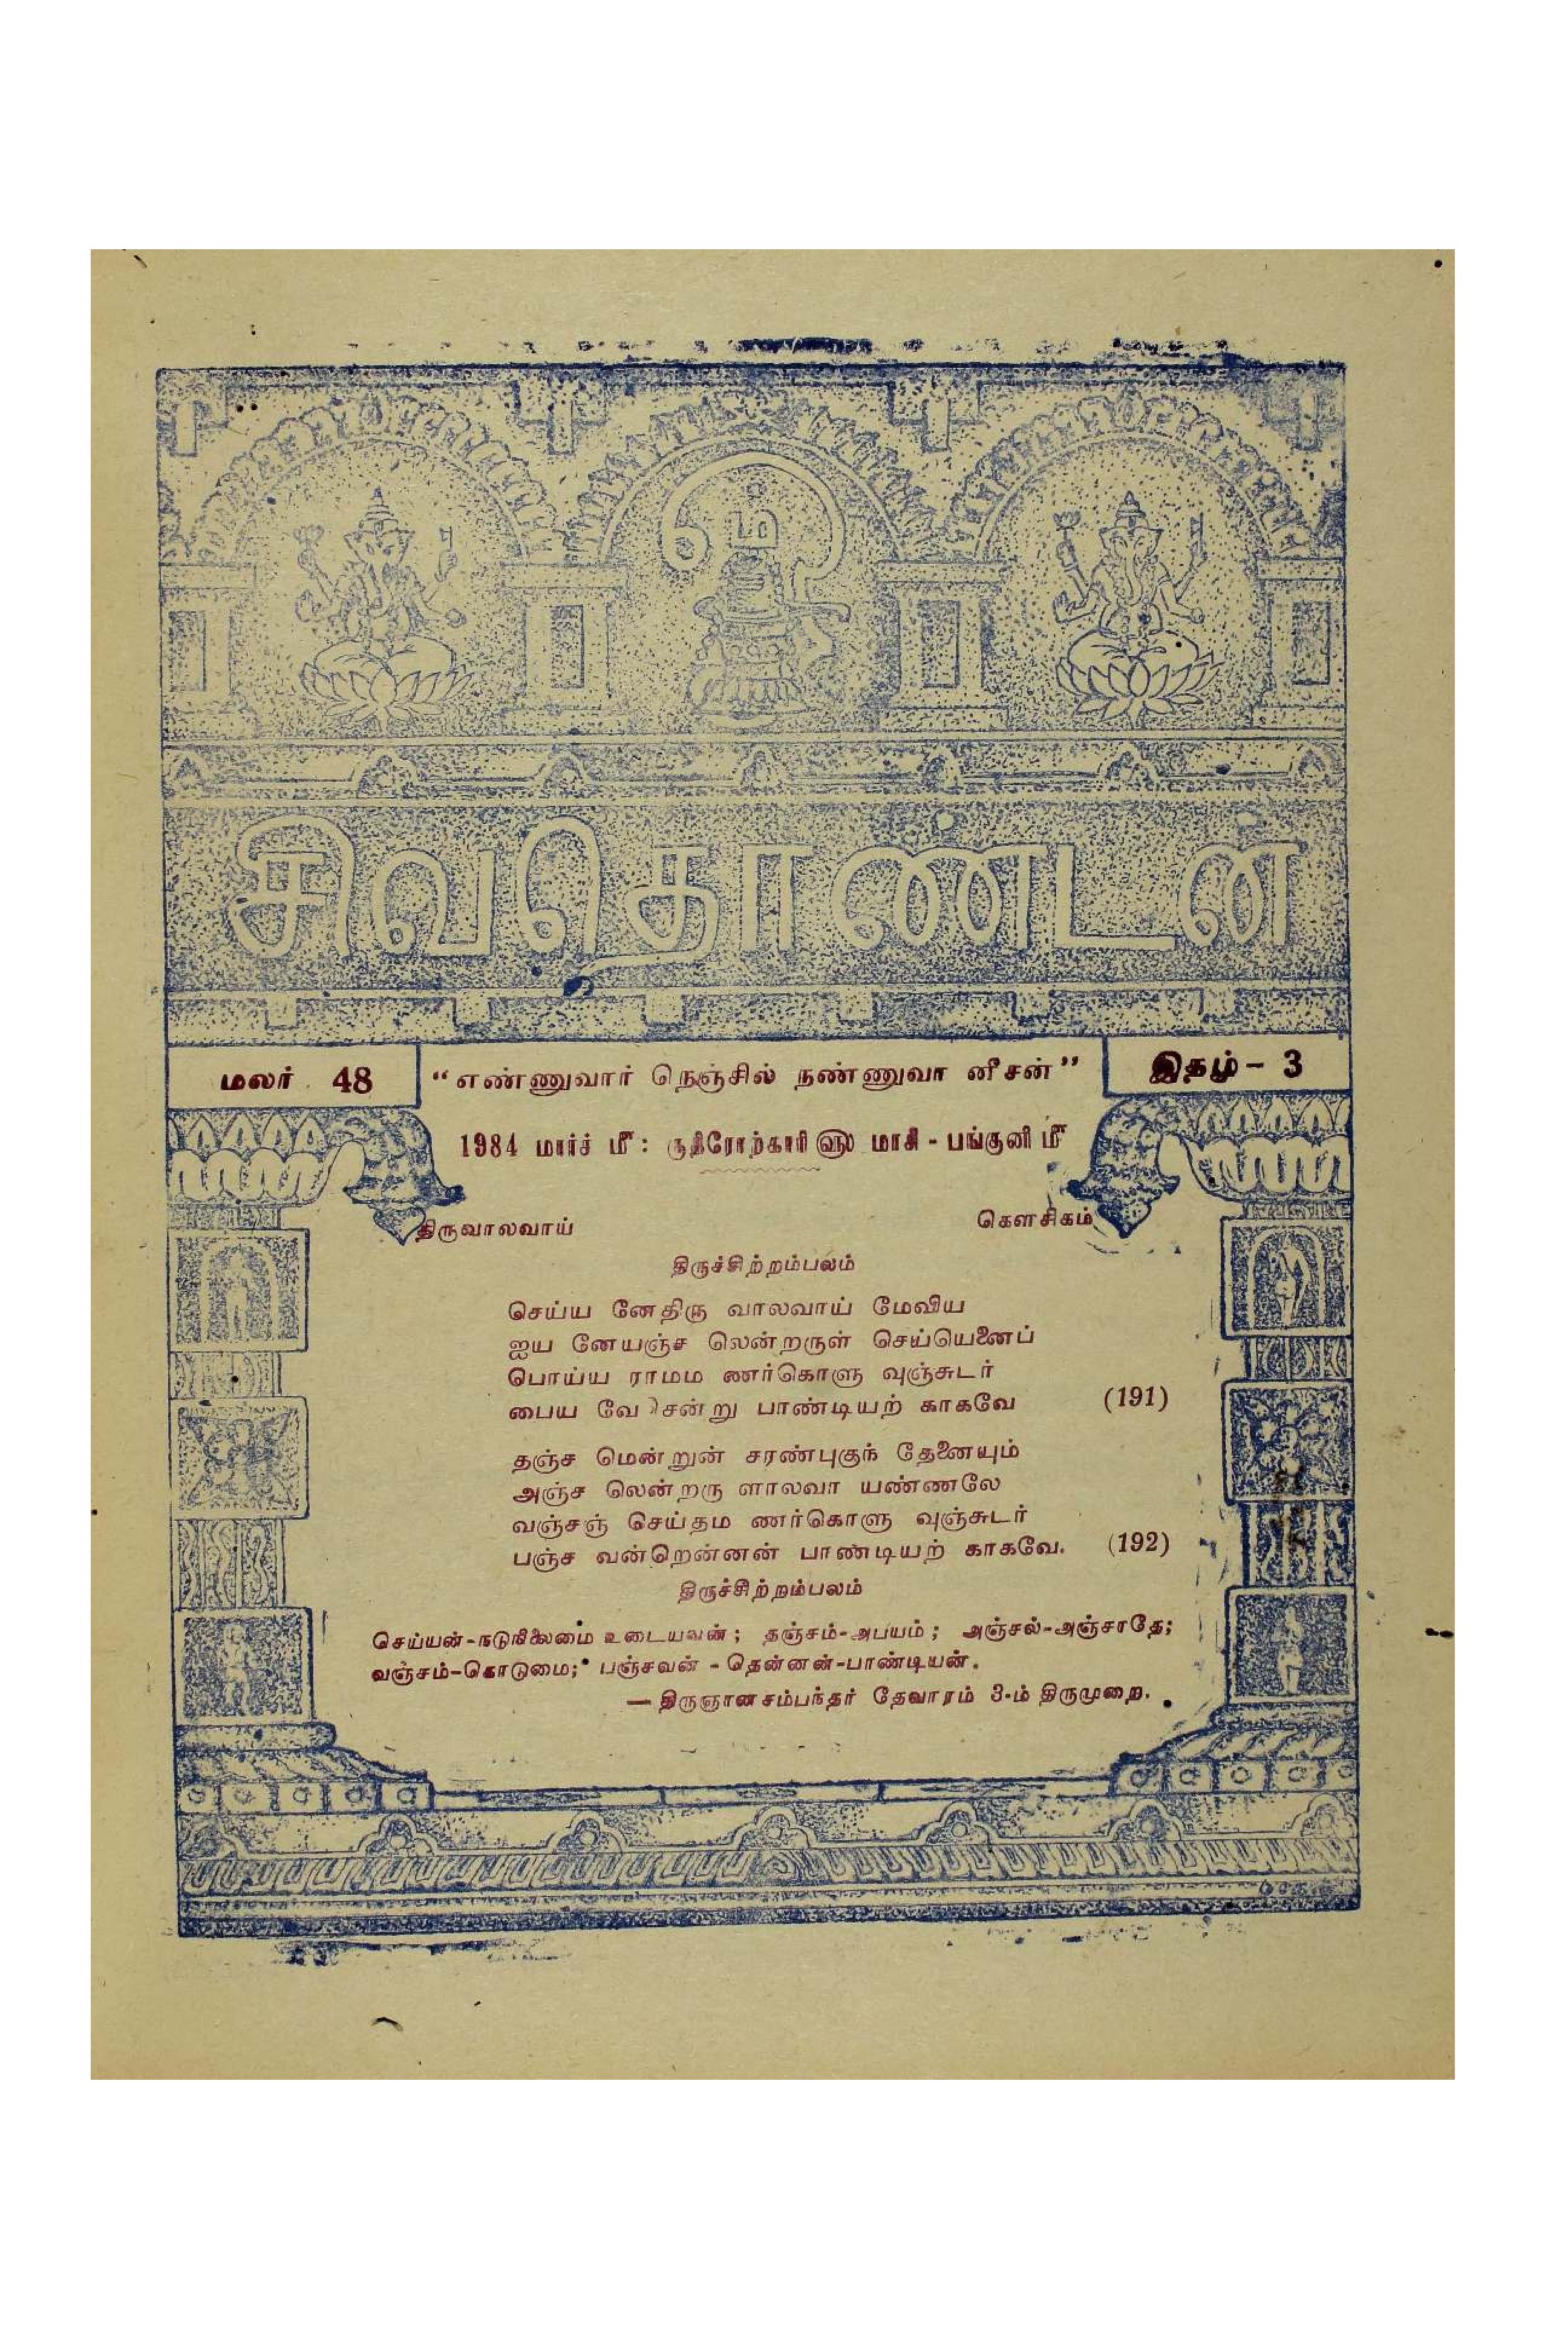 ௐ
சிவதொண்டன்
மலர் 48
“எண்ணுவார் நெஞ்சில் நண்ணுவா னீசன்”
இதழ் - 3
1984 மார்ச் ௴ : ருதிரோற்காரி ௵ மாசி - பங்குனி ௴
திருவாலவாய் கௌசிகம்
திருச்சிற்றம்பலம்
செய்ய னேதிரு வாலவாய் மேவிய
ஐய னேயஞ்ச லென்றருள் செய்யெனைப்
பொய்ய ராமம ணர்கொளு வுஞ்சுடர்
பைய வே சென்று பாண்டியற் காகவே (191)
தஞ்ச மென்றுன் சரண்புகுந் தேனையும்
அஞ்ச லென்றரு ளாலவா யண்ணலே
வஞ்சஞ் செய்தம ணர்கொளு வுஞ்சுடர்
பஞ்ச வன்றென்னன் பாண்டியற் காகவே. (192)
திருச்சிற்றம்பலம்
செய்யன்-நடுநிலைமை உடையவன் ; தஞ்சம்-அபயம் ; அஞ்சல்-அஞ்சாதே;
வஞ்சம்-கொடுமை; பஞ்சவன் - தென்னன்-பாண்டியன்.
— திருஞானசம்பந்தர் தேவாரம் 3-ம் திருமுறை.